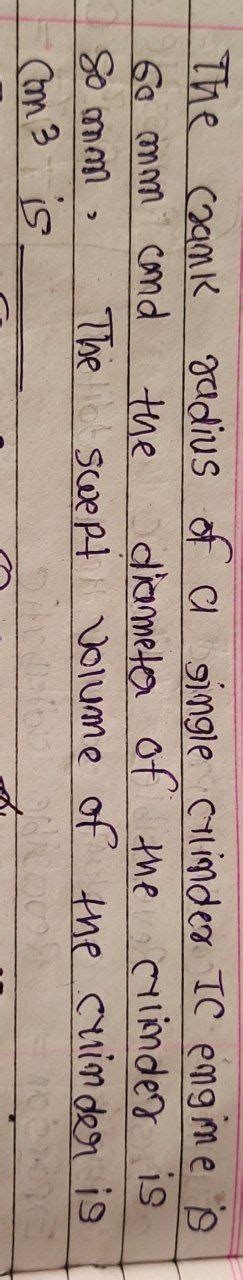 The crank radius of a single cylinder IC engine is
60 mm and the diameter of the cylinder is
80 mm. The swept volume of the cylinder is
cm³ is